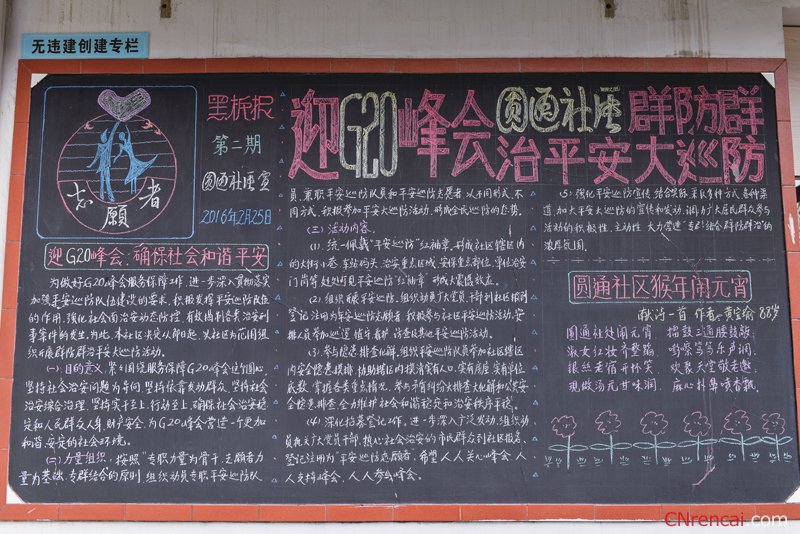 无违建创建专栏
志愿者
黑板报
第二期
圆通社区宣
2016年2月25日
迎G20峰会 圆通社区 群防群
治平安大巡防
迎G20峰会、确保社会和谐平安
为做好G20峰会服务保障工作,进一步深入贯彻落实
加强平安巡防队伍建设的要求,积极发挥平安巡防队伍的
作用,强化社会面治安动态防控,有效遏制各类治安刑
事案件的发生。为此,本社区决定从即日起,以社区为范围组
织开展群防群治平安大巡防活动。
(一)、目的意义,紧紧围绕服务保障G20峰会这个圆心,
坚持社会治安问题为导向,坚持依靠发动群众,坚持社会
治安综合治理,坚持实干至上、行动至上,确保社会治安稳
定和人民群众人身财产安全,为G20峰会营造一个更加
和谐、安定的社会环境。
(二)、力量组织,按照“专职力量为骨干,志愿者力
量为基础,专群结合的原则,组织动员专职平安巡防队
员,兼职平安巡防队员和平安巡防志愿者,以不同形式、不
同方式,积极参加平安大巡防活动,形成全民巡防的态势。
(三)、活动内容。
(1)、统一佩戴“平安巡防”红袖章,形成社区辖区内
的大街小巷、车站码头、治安重点区域、安保重点部位、单位治安
门岗等处处可见平安巡防“红袖章”形成大震慑效应。
(2)、组织开展平安巡防,组织动员广大党员、
登记注册为平安巡防志愿者,积极参与社区平安巡防活动,安
排人员参加
(3)、参与隐患排查化解,组织平安巡防队员参加社区辖区
内安全隐患摸排,协助辖区内摸清实有人口、实有房屋、实有单位
底数,掌握各类重点情况,参与矛盾纠纷大排查大化解和公共安
全隐患排查,全力维护社会和谐稳定和治安秩序平稳。
(4)、深化招募登记工作,进一步深入广泛发动、组织动
员机关广大党员干部、热心社会治安的市民群众到社区报名、
登记注册为“平安巡防志愿者,希望人人关心峰会、人
人支持峰会、人人参与峰会。
(5)、强化平安巡防宣传,结合实际,采取多种方式、各种渠
道,加大平安大巡防的宣传和发动,调动广大居民群众参与
活动的积极性、主动性,大力营造“专群结合群防群治”的
浓厚氛围。
圆通社区猴年闹元宵
献诗一首 作者 黄宝瑜 88岁
圆通社处闹元宵
淑女红妆齐整
银丝老宿开怀笑 欢聚大堂
现做汤元甘味润,